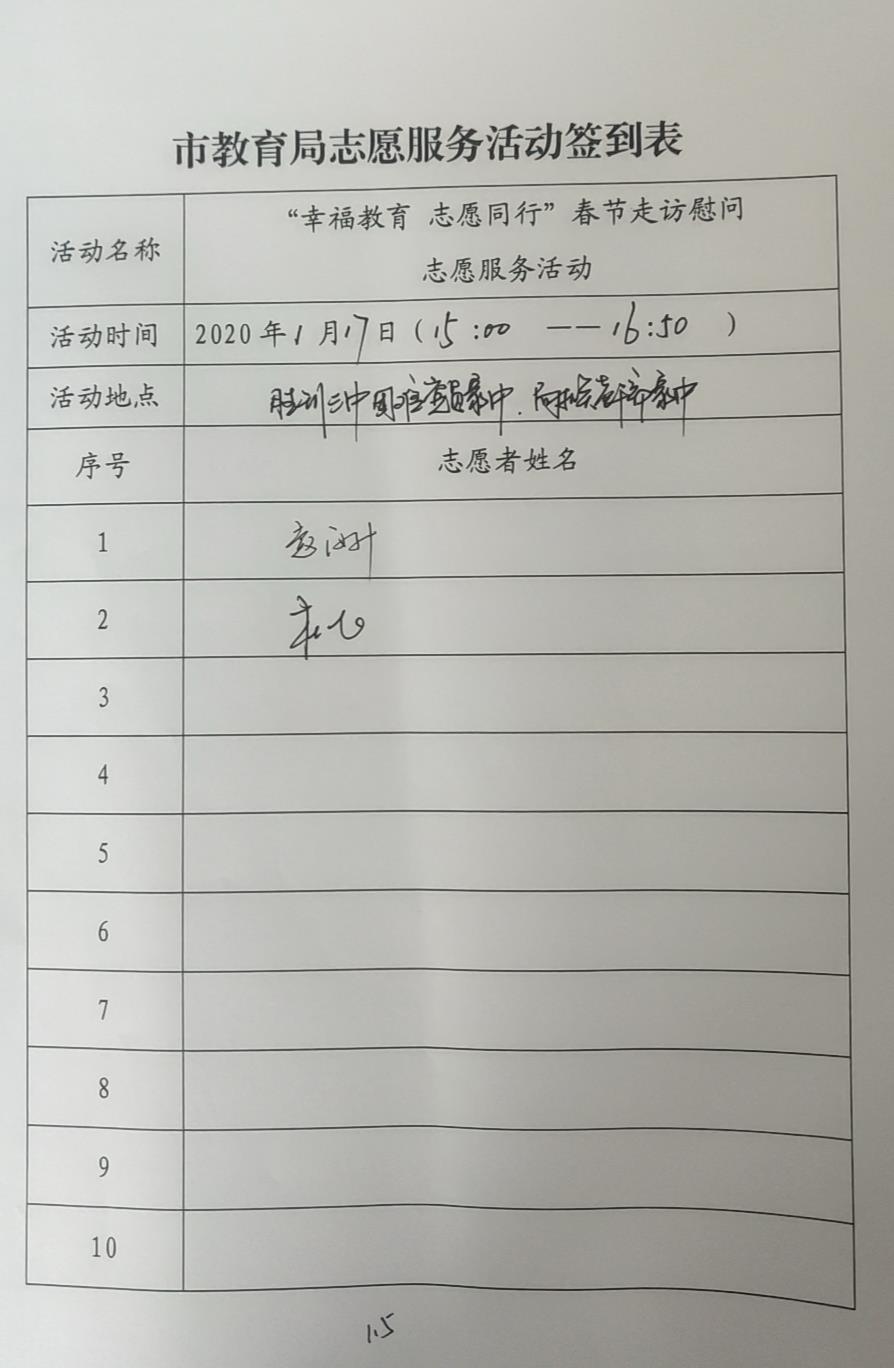 市教育局志愿服务活动签到表
活动名称
“幸福教育 志愿同行”春节走访慰问
志愿服务活动
活动时间 2020年1月17日（15:00 ——16:50 ）
活动地点 胜利三中困难党员家中.
序号 志愿者姓名
1
2
3
4
5
6
7
8
9
10
1.5